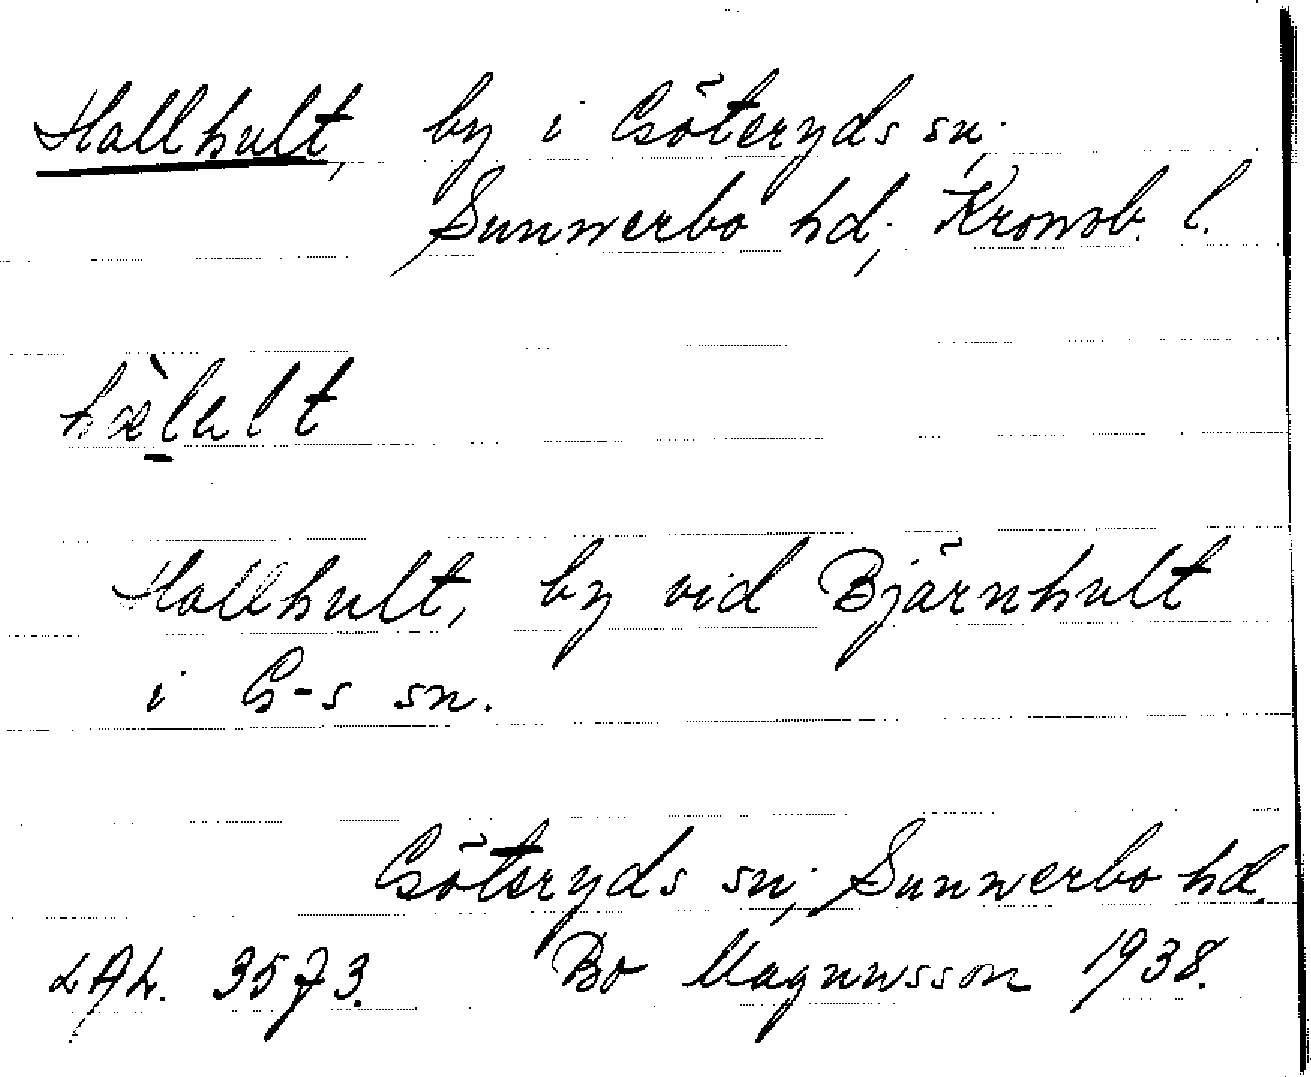 Hallhult, by i Göteryds sn.,
Sunnerbo hd., Kronob. l.
hælult
Hallhult, by vid Bjärnhult
i G-s sn.
Göteryds sn., Sunnerbo hd.
LAL. 3573. Bo Magnusson 1938.